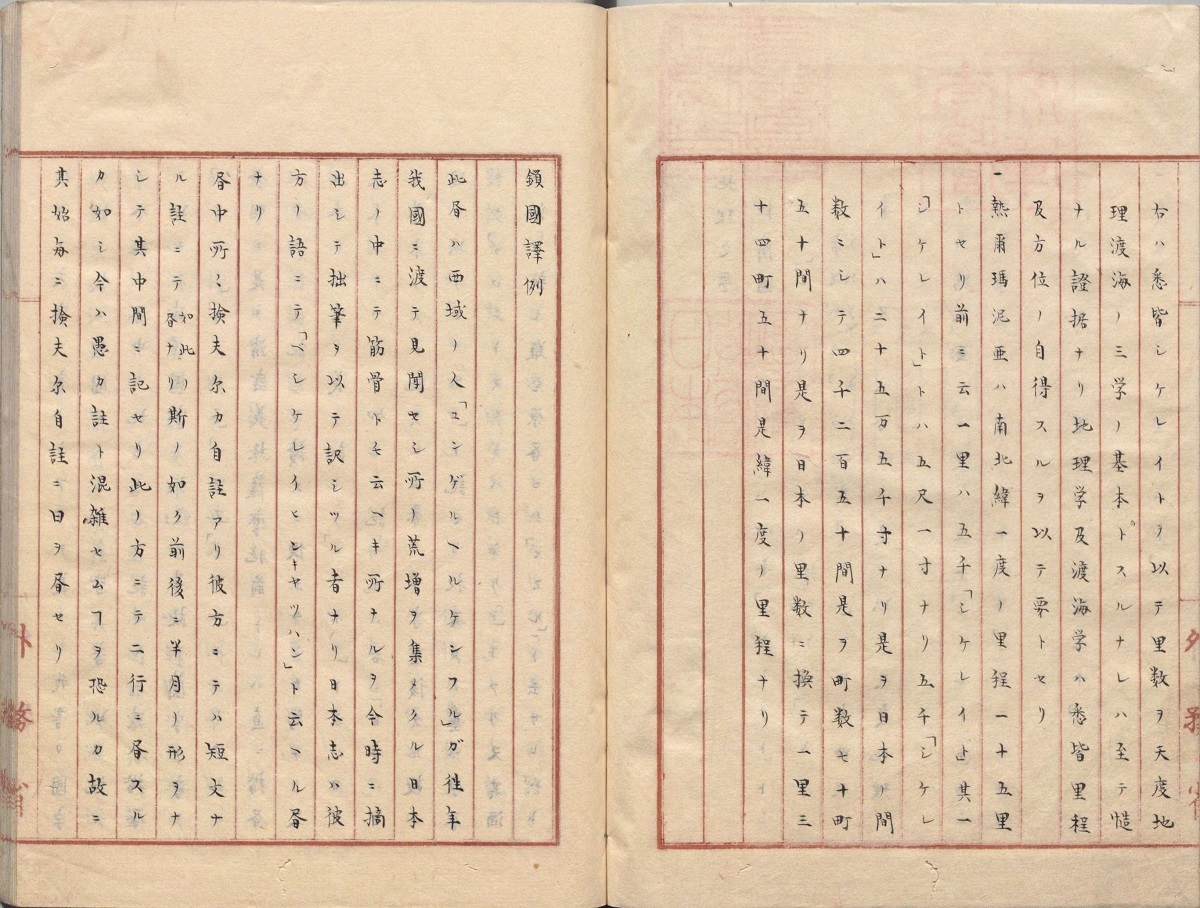 右ハ悉皆シケレイトヲ以テ里数ヲ天度地
理渡海ノ三学ノ基本ドスルナレハ至テ慥
ナル證拠ナリ地理学及渡海学ハ悉皆里程
及方位ノ自得スルヲ以テ要トセリ
一熱爾瑪泥亜ハ南北緯一度ノ里程一十五里
トセリ前ニ云一里ハ五千「シケレイト」其一
「シケレイト」トハ五尺一寸ナリ五千「シケレ
イト」ハ二十五万五千寸ナリ是ヲ日本ノ間
数ニシテ四千二百五十間是ヲ町数七十町
五十間ナリ是ヲ日本ノ里数ニ換テ一里三
十四町五十間是緯一度ノ里程ナリ
鎖國譯例
此書ハ西域ノ人「エンゲルベルルケンフル」ガ往年
我國ニ渡テ見聞セシ所ノ荒増ヲ集メタル日本
志ノ中ニテ筋骨トモ云ヘキ所ナルヲ今時ニ摘
出シテ拙筆ヲ以テ訳シツヽル者ナリ日本志ハ彼
方ノ語ニテ「ベシケレイヒンキヤツハン」ト云ヘル書
ナリ
書中所〻撿夫尓カ自註アリ彼方ニテハ短文ナ
ル註ニテ如此ノ書ナリ斯ノ如ク前後ニ半月ノ形ヲナ
シテ其中間ニ記セリ此ノ方ニテ二行ニ書スル
カ如シ今ハ愚カ註ト混雑セムヿヲ恐ルカ故ニ
其始毎ニ撿夫尓自註ニ曰ヲ書セリ
外務省
外務省